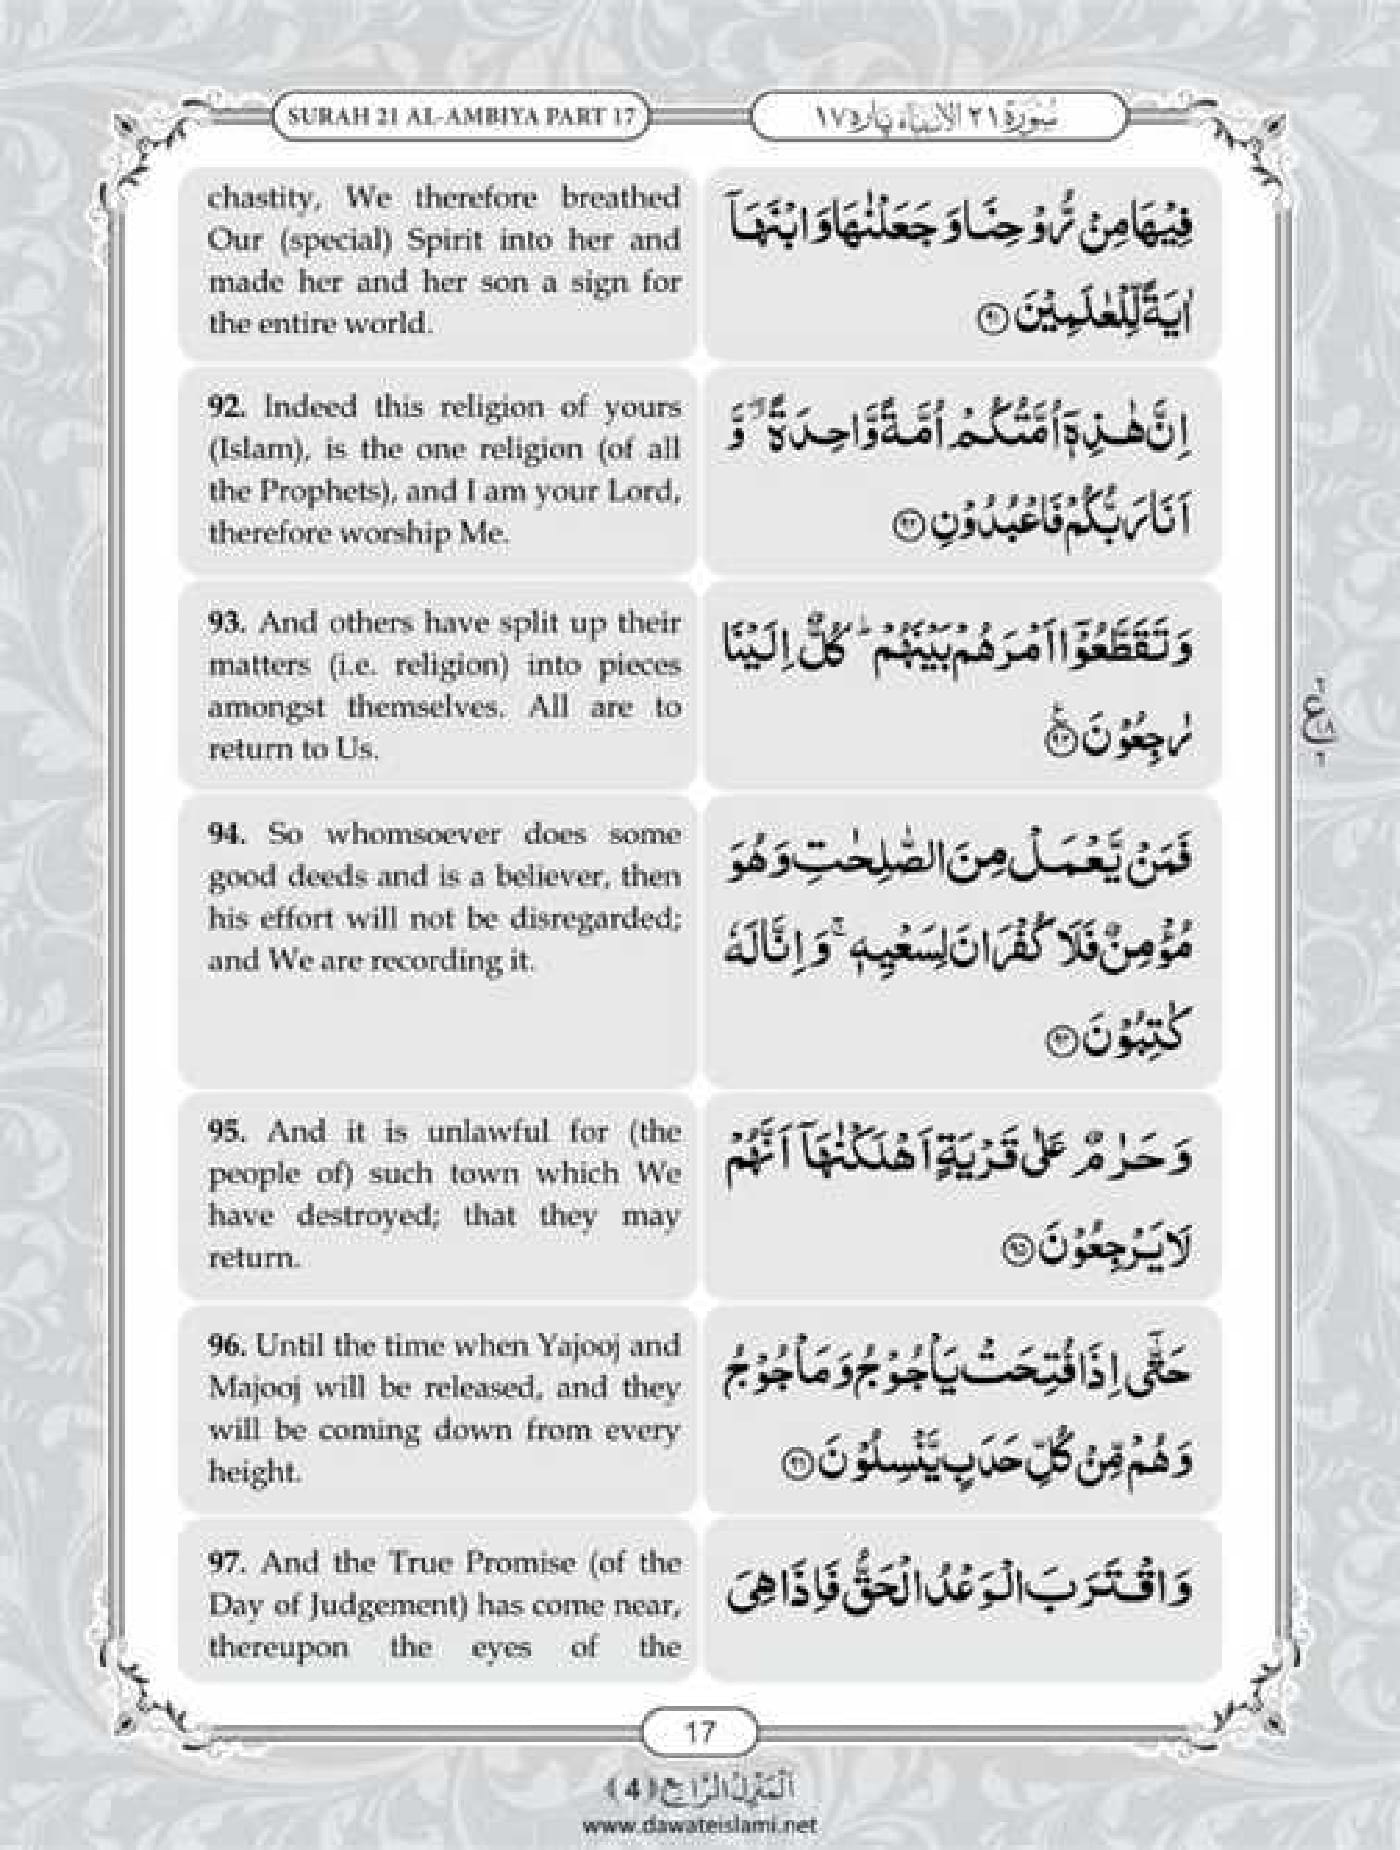 SURAH 21 AL-AMBIYA PART 17
سُوْرَة ٢١ الاَنۡۢبِيَآء پارہ ١٧
chastity, We therefore breathed
Our (special) Spirit into her and
made her and her son a sign for
the entire world.
فِيْهَا مِنْ رُّوْحِنَا وَ جَعَلْنٰهَا وَ ابْنَهَاۤ
اٰيَةً لِّلْعٰلَمِيْنَ ﴿۹۱﴾
92. Indeed this religion of yours
(Islam), is the one religion (of all
the Prophets), and I am your Lord,
therefore worship Me.
اِنَّ هٰذِهٖۤ اُمَّتُكُمْ اُمَّةً وَّاحِدَةً ۖ٘ وَّ
اَنَا رَبُّكُمْ فَاعْبُدُوْنِ ﴿۹۲﴾
93. And others have split up their
matters (i.e. religion) into pieces
amongst themselves. All are to
return to Us.
وَ تَقَطَّعُوْۤا اَمْرَهُمْ بَيْنَهُمْ ؕ كُلٌّ اِلَيْنَا
رٰجِعُوْنَ ﴿۹۳﴾
94. So whomsoever does some
good deeds and is a believer, then
his effort will not be disregarded;
and We are recording it.
فَمَنْ يَّعْمَلْ مِنَ الصّٰلِحٰتِ وَ هُوَ
مُؤْمِنٌ فَلَا كُفْرَانَ لِسَعْيِهٖ ۚ وَ اِنَّا لَهٗ
كٰتِبُوْنَ ﴿۹۴﴾
95. And it is unlawful for (the
people of) such town which We
have destroyed; that they may
return.
وَ حَرٰمٌ عَلٰى قَرْيَةٍ اَهْلَكْنٰهَاۤ اَنَّهُمْ
لَا يَرْجِعُوْنَ ﴿۹۵﴾
96. Until the time when Yajooj and
Majooj will be released, and they
will be coming down from every
height.
حَتّٰۤى اِذَا فُتِحَتْ يَاْجُوْجُ وَ مَاْجُوْجُ
وَ هُمْ مِّنْ كُلِّ حَدَبٍ يَّنْسِلُوْنَ ﴿۹۶﴾
97. And the True Promise (of the
Day of Judgement) has come near,
thereupon the eyes of the
وَ اقْتَرَبَ الْوَعْدُ الْحَقُّ فَاِذَا هِىَ
17
اَلْمَنْزِلُ الرَّابِع (4)
www.dawateislami.net